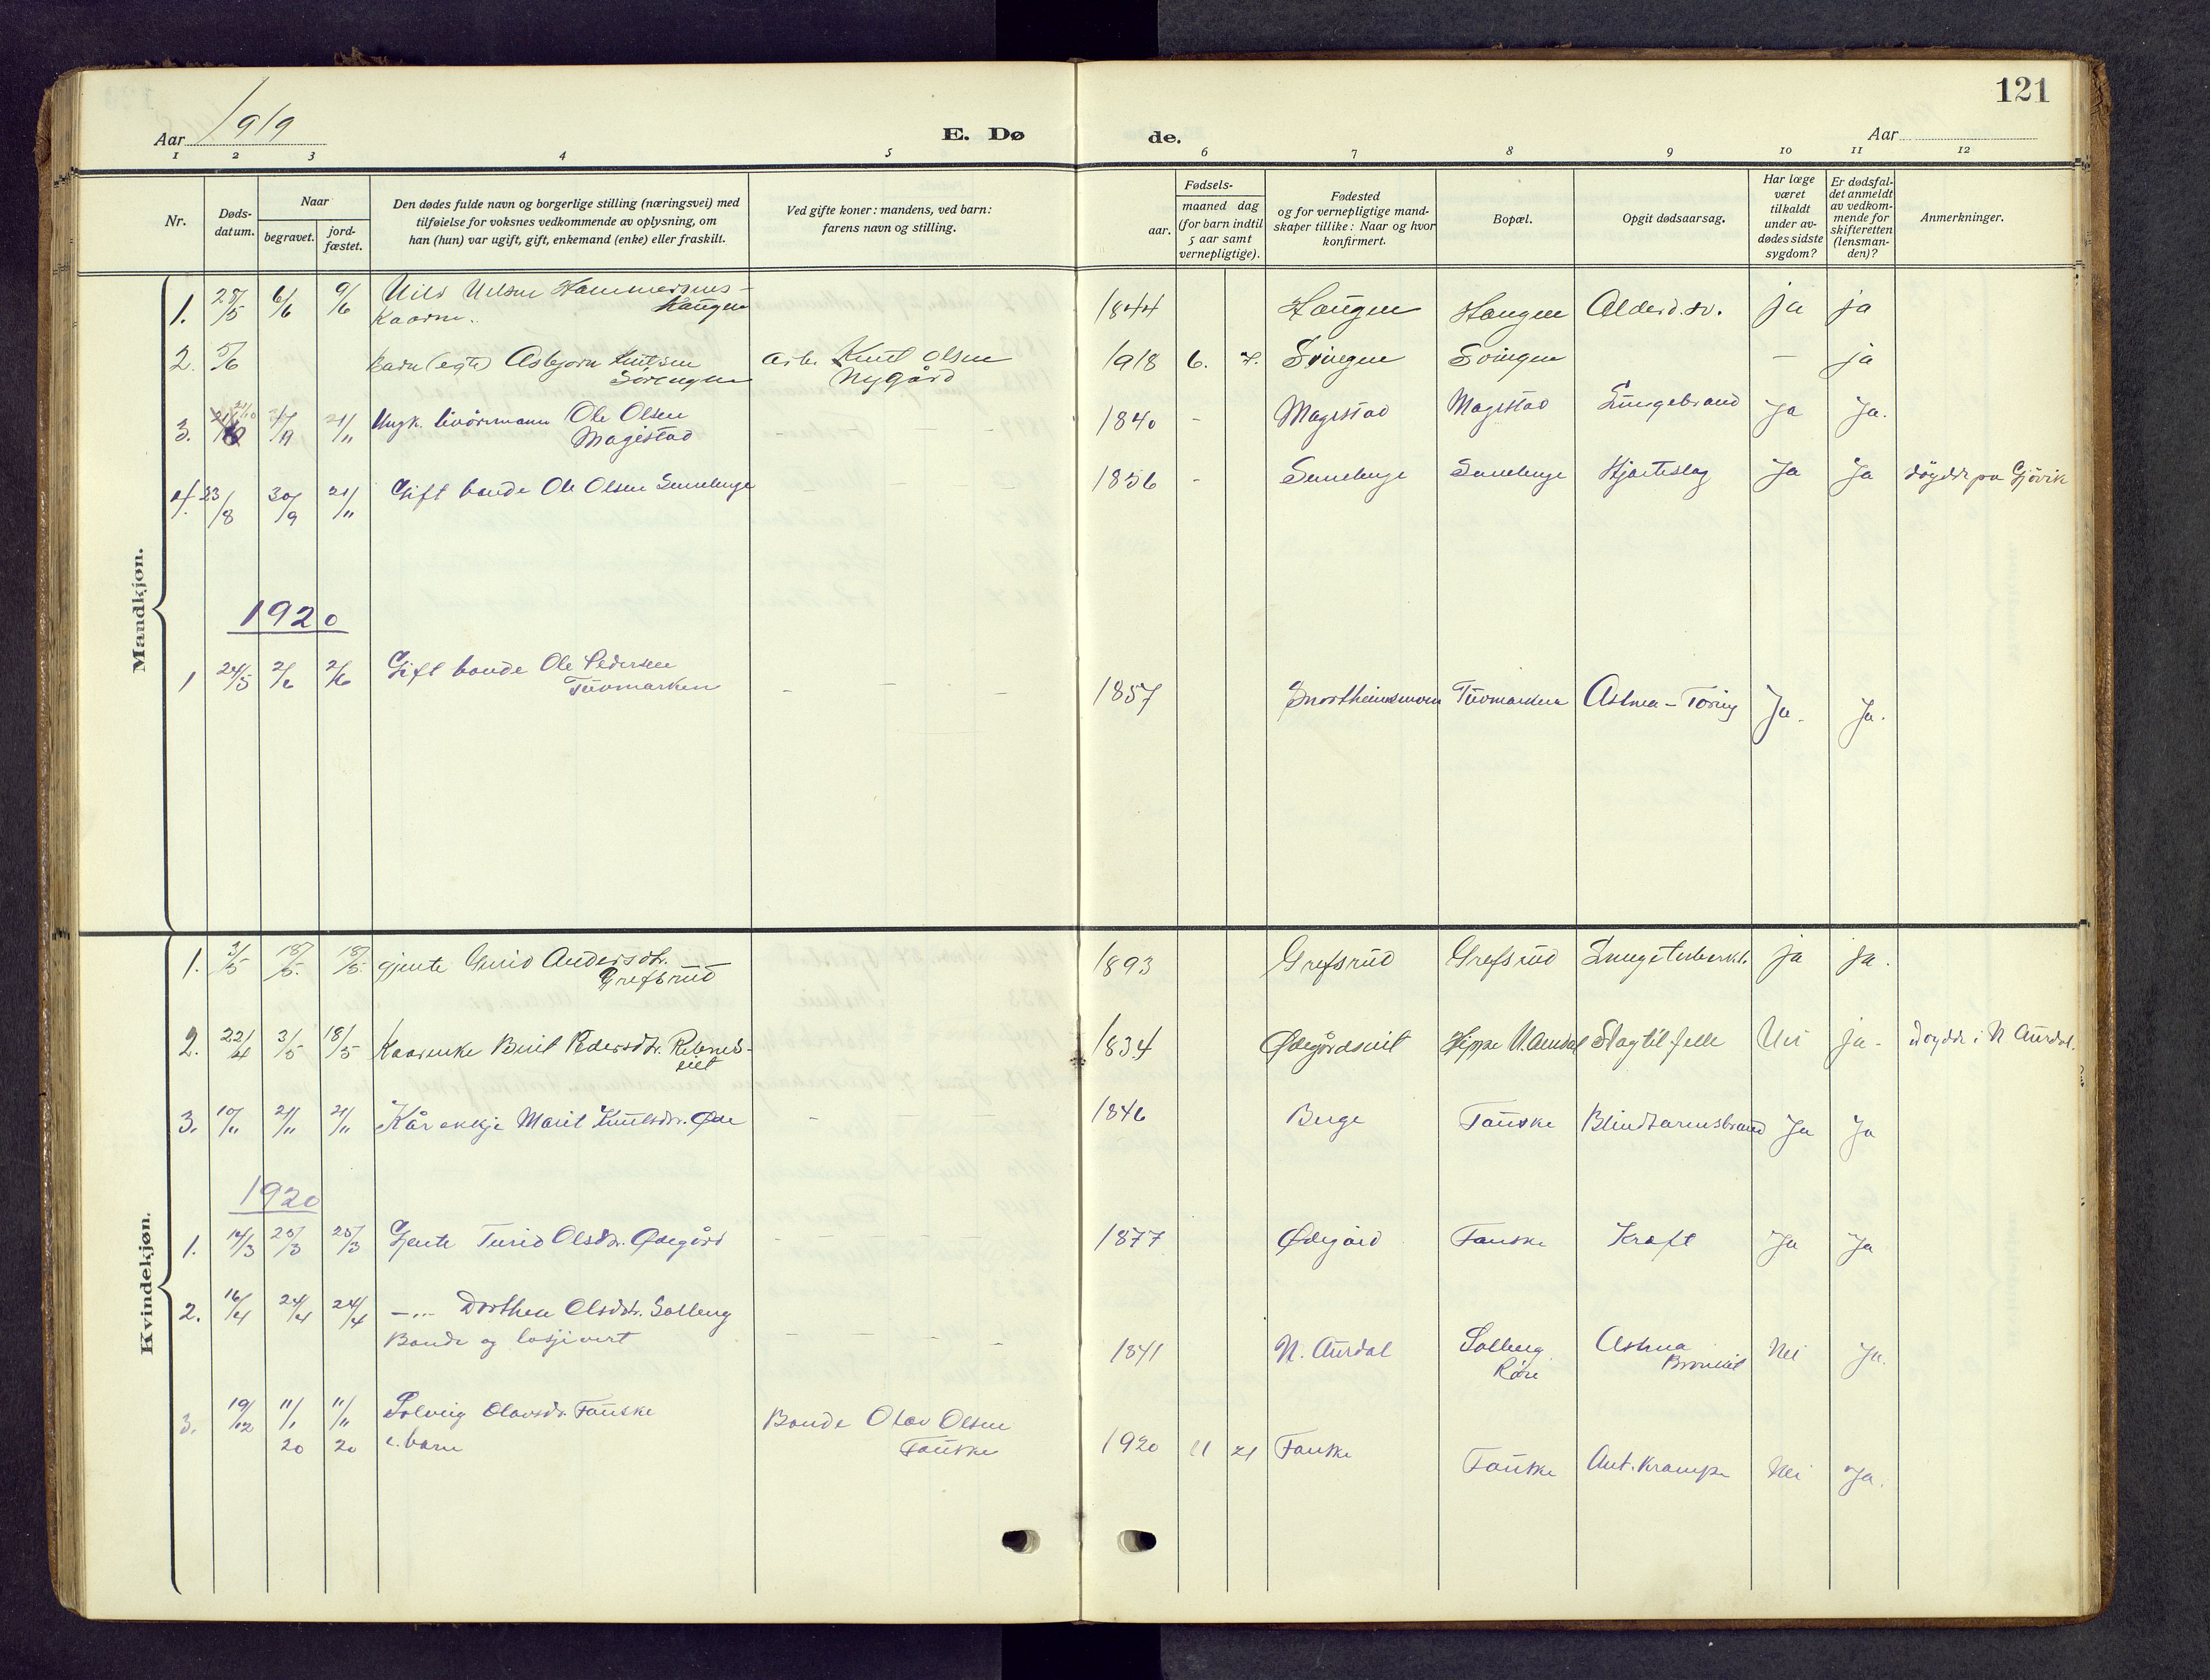 121
Aar 1919
E. Dø
de.
Aar
1 2 3 4 5 6 7 8 9 10 11 12
Nr.
Døds-
datum.
Naar
begravet.
jord-
fæstet.
Den dødes fulde navn og borgerlige stilling (næringsvei) med
tilføielse for voksnes vedkommende av oplysning, om
han (hun) var ugift, gift, enkemand (enke) eller fraskilt.
Ved gifte koner: mandens, ved barn:
farens navn og stilling.
Fødsels-
aar.
maaned dag
(for barn indtil
5 aar samt
vernepligtige).
Fødested
og for vernepligtige mand-
skaper tillike: Naar og hvor
konfirmert.
Bopæl.
Opgit dødsaarsag.
Har læge
været
tilkaldt
under av-
dødes sidste
sygdom?
Er dødsfal-
det anmeldt
av vedkom-
mende for
skifteretten
(lensman-
den)?
Anmerkninger.
Mandkjøn.
1. 28/5 6/6 9/6 Nils Nilsen Hammersnes- 1844 Haugen Haugen Alderd.sv. ja ja
Haugen
Kaarm.
2. 5/6 barn (egte) Asbjørn Knutsen arb. Knut Olsen 1918 6. 7. Svingen Svingen — ja
Nygård
3. 21/10 21/11 Ungk. livörmann Ole Olsen - 1840 - Magistad Magistad Lungebrand Ja Ja.
Magistad
4. 23/8 30/9 21/11 Gift bonde Ole Olsen 1856 - Hjarteslag Ja Ja döydde pa Gjövik
1920
1 24/5 2/6 2/6 Gift bonde Ole Pedersen - 1857 Astma - Ja. Ja.
Kvindekjøn.
1. 3/5 18/5. 18/5. gjente Gurid Andersdtr. 1893 Grefsrud Grefsrud Lungetuberkl. ja ja.
Grefsrud
2. 22/4 3/5 18/5 Kaarenke Berit Pedersdtr. 1834 N. Aurdal Slagtilfelle Nei ja- döydde i N Aurdal.
3. 10/11 21/11 21/11 Kårenkje Marit Knutsdtr. Øde - 1846 Berge Fauske Blindtarmsbrand Ja Ja
1920
1. 14/3 25/3 25/3 Gjente Turid Olsdtr. Ødegård - 1877 Ødegård Fauske Kraft Ja Ja
2. 16/4 24/4 24/4 —„— Dorthea Olsdtr. Solberg
Bonde og losjivert - 1841 N. Aurdal Solberg Astma Nei Ja.
3. 19/12 11/1 11/1 Solveig Olavsdr. Fauske Bonde Olav Olsen
20 20 e. barn Fauske 1920 11 21 Fauske Fauske Ant. Krampe Nei Ja.